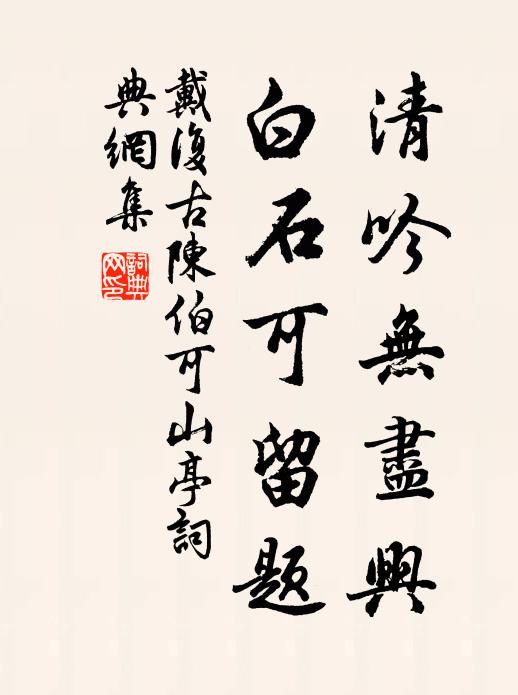 清吟無盡興
白石可留題
戴復古陳伯可山亭詞
典網集
詞典網印